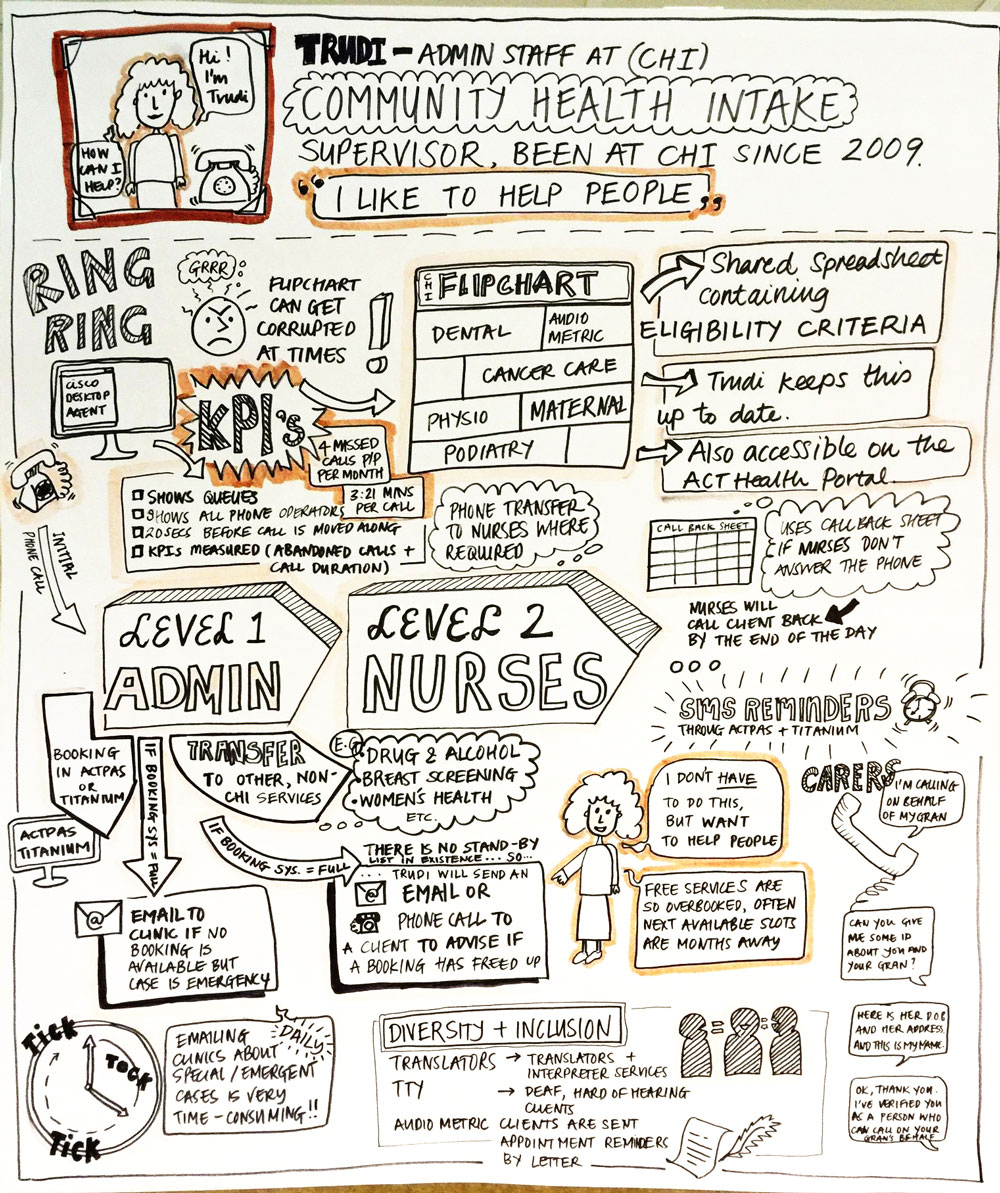 Hi!
I'm
Trudi
HOW
CAN I
HELP?
TRUDI - ADMIN STAFF AT (CHI)
COMMUNITY HEALTH INTAKE
SUPERVISOR, BEEN AT CHI SINCE 2009.
"I LIKE TO HELP PEOPLE"
RING
RING
GRRR
FLIPCHART
CAN GET
CORRUPTED
AT TIMES
!
CISCO
DESKTOP
AGENT
KPI's
4 MISSED
CALLS P/P
PER MONTH
3:21 MINS
PER CALL
SHOWS QUEUES
SHOWS ALL PHONE OPERATORS
20 SECS BEFORE CALL IS MOVED ALONG
KPIs MEASURED (ABANDONED CALLS +
CALL DURATION)
CHI FLIPCHART
DENTAL
AUDIO
METRIC
CANCER CARE
PHYSIO
MATERNAL
PODIATRY
Shared Spreadsheet
containing
ELIGIBILITY CRITERIA
Trudi keeps this
up to date.
Also accessible on the
ACT Health Portal.
INITIAL
PHONE CALL
PHONE TRANSFER
TO NURSES WHERE
REQUIRED
CALL BACK SHEET
USES CALL BACK SHEET
IF NURSES DON'T
ANSWER THE PHONE
NURSES WILL
CALL CLIENT BACK
BY THE END OF THE DAY
LEVEL 1
ADMIN
LEVEL 2
NURSES
SMS REMINDERS
THROUG ACTPAS + TITANIUM
BOOKING
IN ACTPAS
OR
TITANIUM
ACTPAS
TITANIUM
IF BOOKING SYS = FULL
TRANSFER
TO OTHER, NON-
CHI SERVICES
E.G
DRUG & ALCOHOL
BREAST SCREENING
WOMEN'S HEALTH
ETC.
IF BOOKING SYS. = FULL
THERE IS NO STAND-BY
LIST IN EXISTENCE... SO...
... TRUDI WILL SEND AN
EMAIL OR
PHONE CALL TO
A CLIENT TO ADVISE IF
A BOOKING HAS FREED UP
@
EMAIL TO
CLINIC IF NO
BOOKING IS
AVAILABLE BUT
CASE IS EMERGENCY
@
I DON'T HAVE
TO DO THIS,
BUT WANT
TO HELP PEOPLE
FREE SERVICES ARE
SO OVERBOOKED, OFTEN
NEXT AVAILABLE SLOTS
ARE MONTHS AWAY
CARERS
I'M CALLING
ON BEHALF
OF MY GRAN
CAN YOU GIVE
ME SOME ID
ABOUT YOU AND
YOUR GRAN?
HERE IS HER D.O.B
AND HER ADDRESS.
AND THIS IS MY NAME.
OK, THANK YOU.
I'VE VERIFIED YOU
AS A PERSON WHO
CAN CALL ON YOUR
GRAN'S BEHALF
Tick
TOCK
Tick
DAILY
EMAILING
CLINICS ABOUT
SPECIAL/EMERGENT
CASES IS VERY
TIME-CONSUMING!!
DIVERSITY + INCLUSION
TRANSLATORS → TRANSLATORS +
INTERPRETER SERVICES
TTY → DEAF, HARD OF HEARING
CLIENTS
AUDIO METRIC CLIENTS ARE SENT
APPOINTMENT REMINDERS
BY LETTER